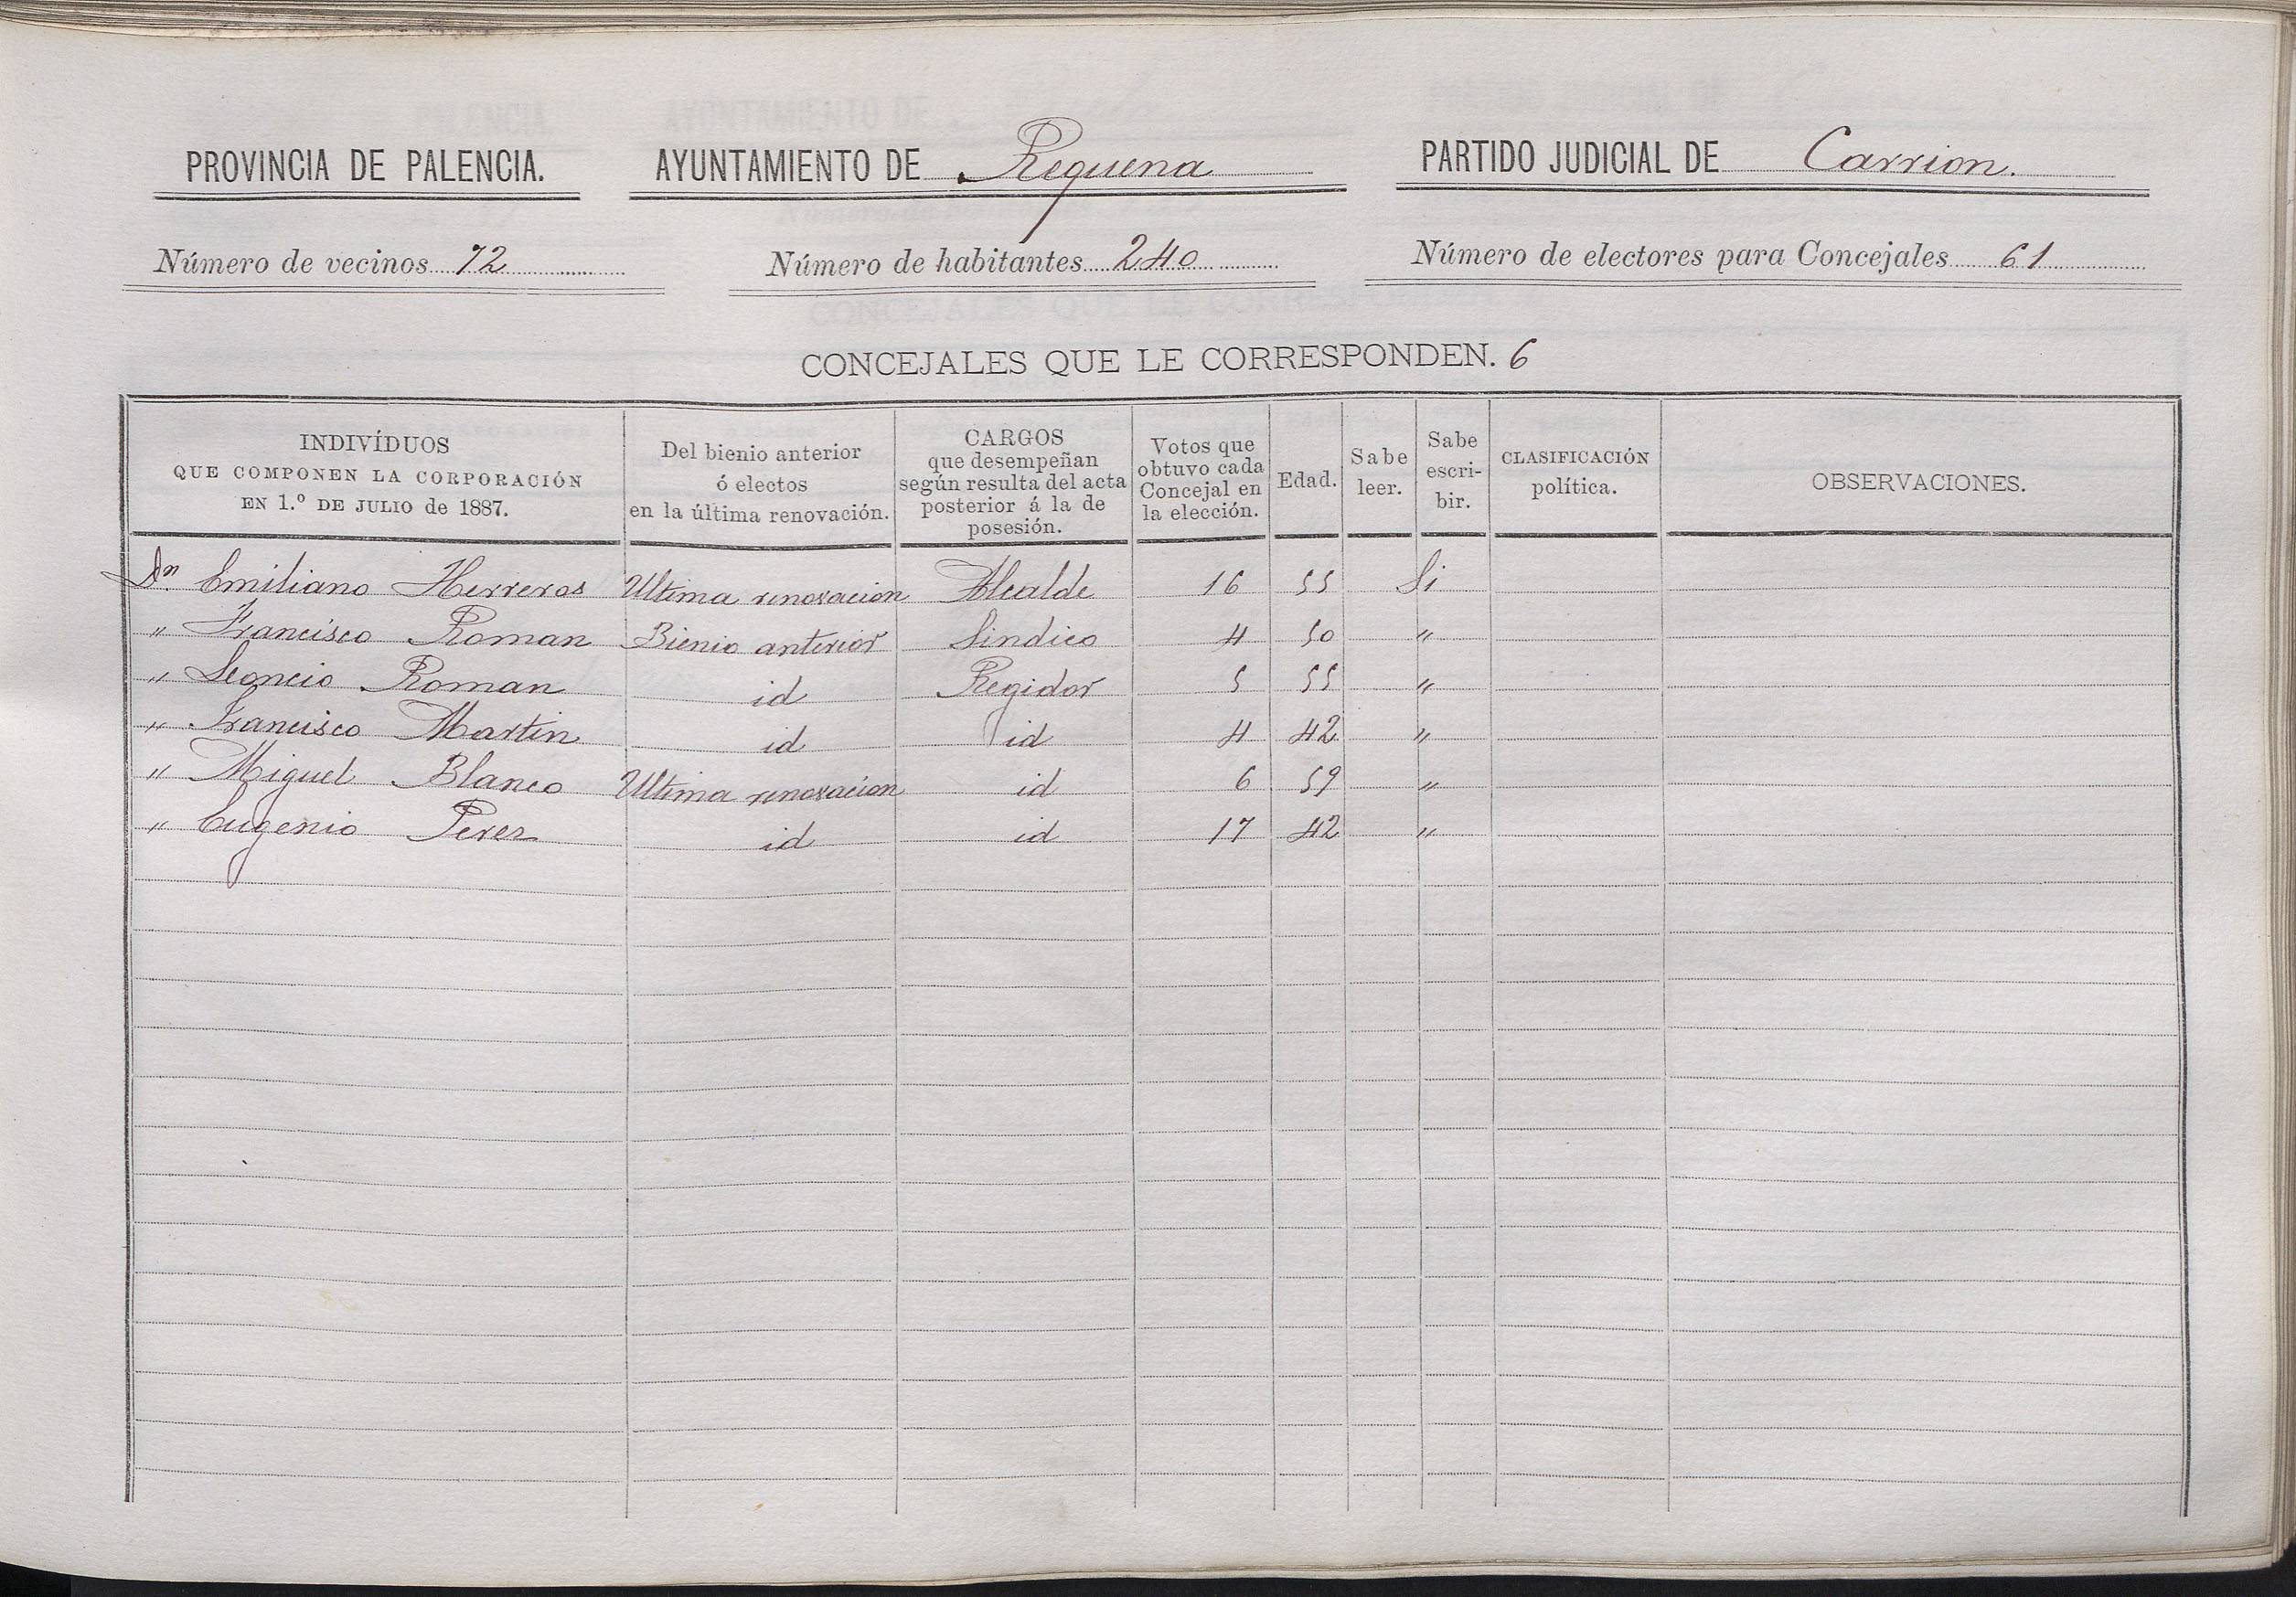 PROVINCIA DE PALENCIA. AYUNTAMIENTO DE Requena PARTIDO JUDICIAL DE Carrion.
Número de vecinos 72 Número de habitantes 240 Número de electores para Concejales 61
CONCEJALES QUE LE CORRESPONDEN. 6
INDIVÍDUOS
QUE COMPONEN LA CORPORACIÓN
EN 1.º DE JULIO de 1887.
Del bienio anterior
ó electos
en la última renovación.
CARGOS
que desempeñan
según resulta del acta
posterior á la de
posesión.
Votos que
obtuvo cada
Concejal en
la elección.
Edad.
Sabe
leer.
Sabe
escri-
bir.
CLASIFICACIÓN
política.
OBSERVACIONES.
Dn. Emiliano Herreros Ultima renovacion Alcalde 16 55 Si
" Francisco Roman Bienio anterior Sindico 4 50 "
" Leoncio Roman id Regidor 5 55 "
" Francisco Martin id id 4 42 "
" Miguel Blanco Ultima renovacion id 6 59 "
" Eugenio Perez id id 17 42 "